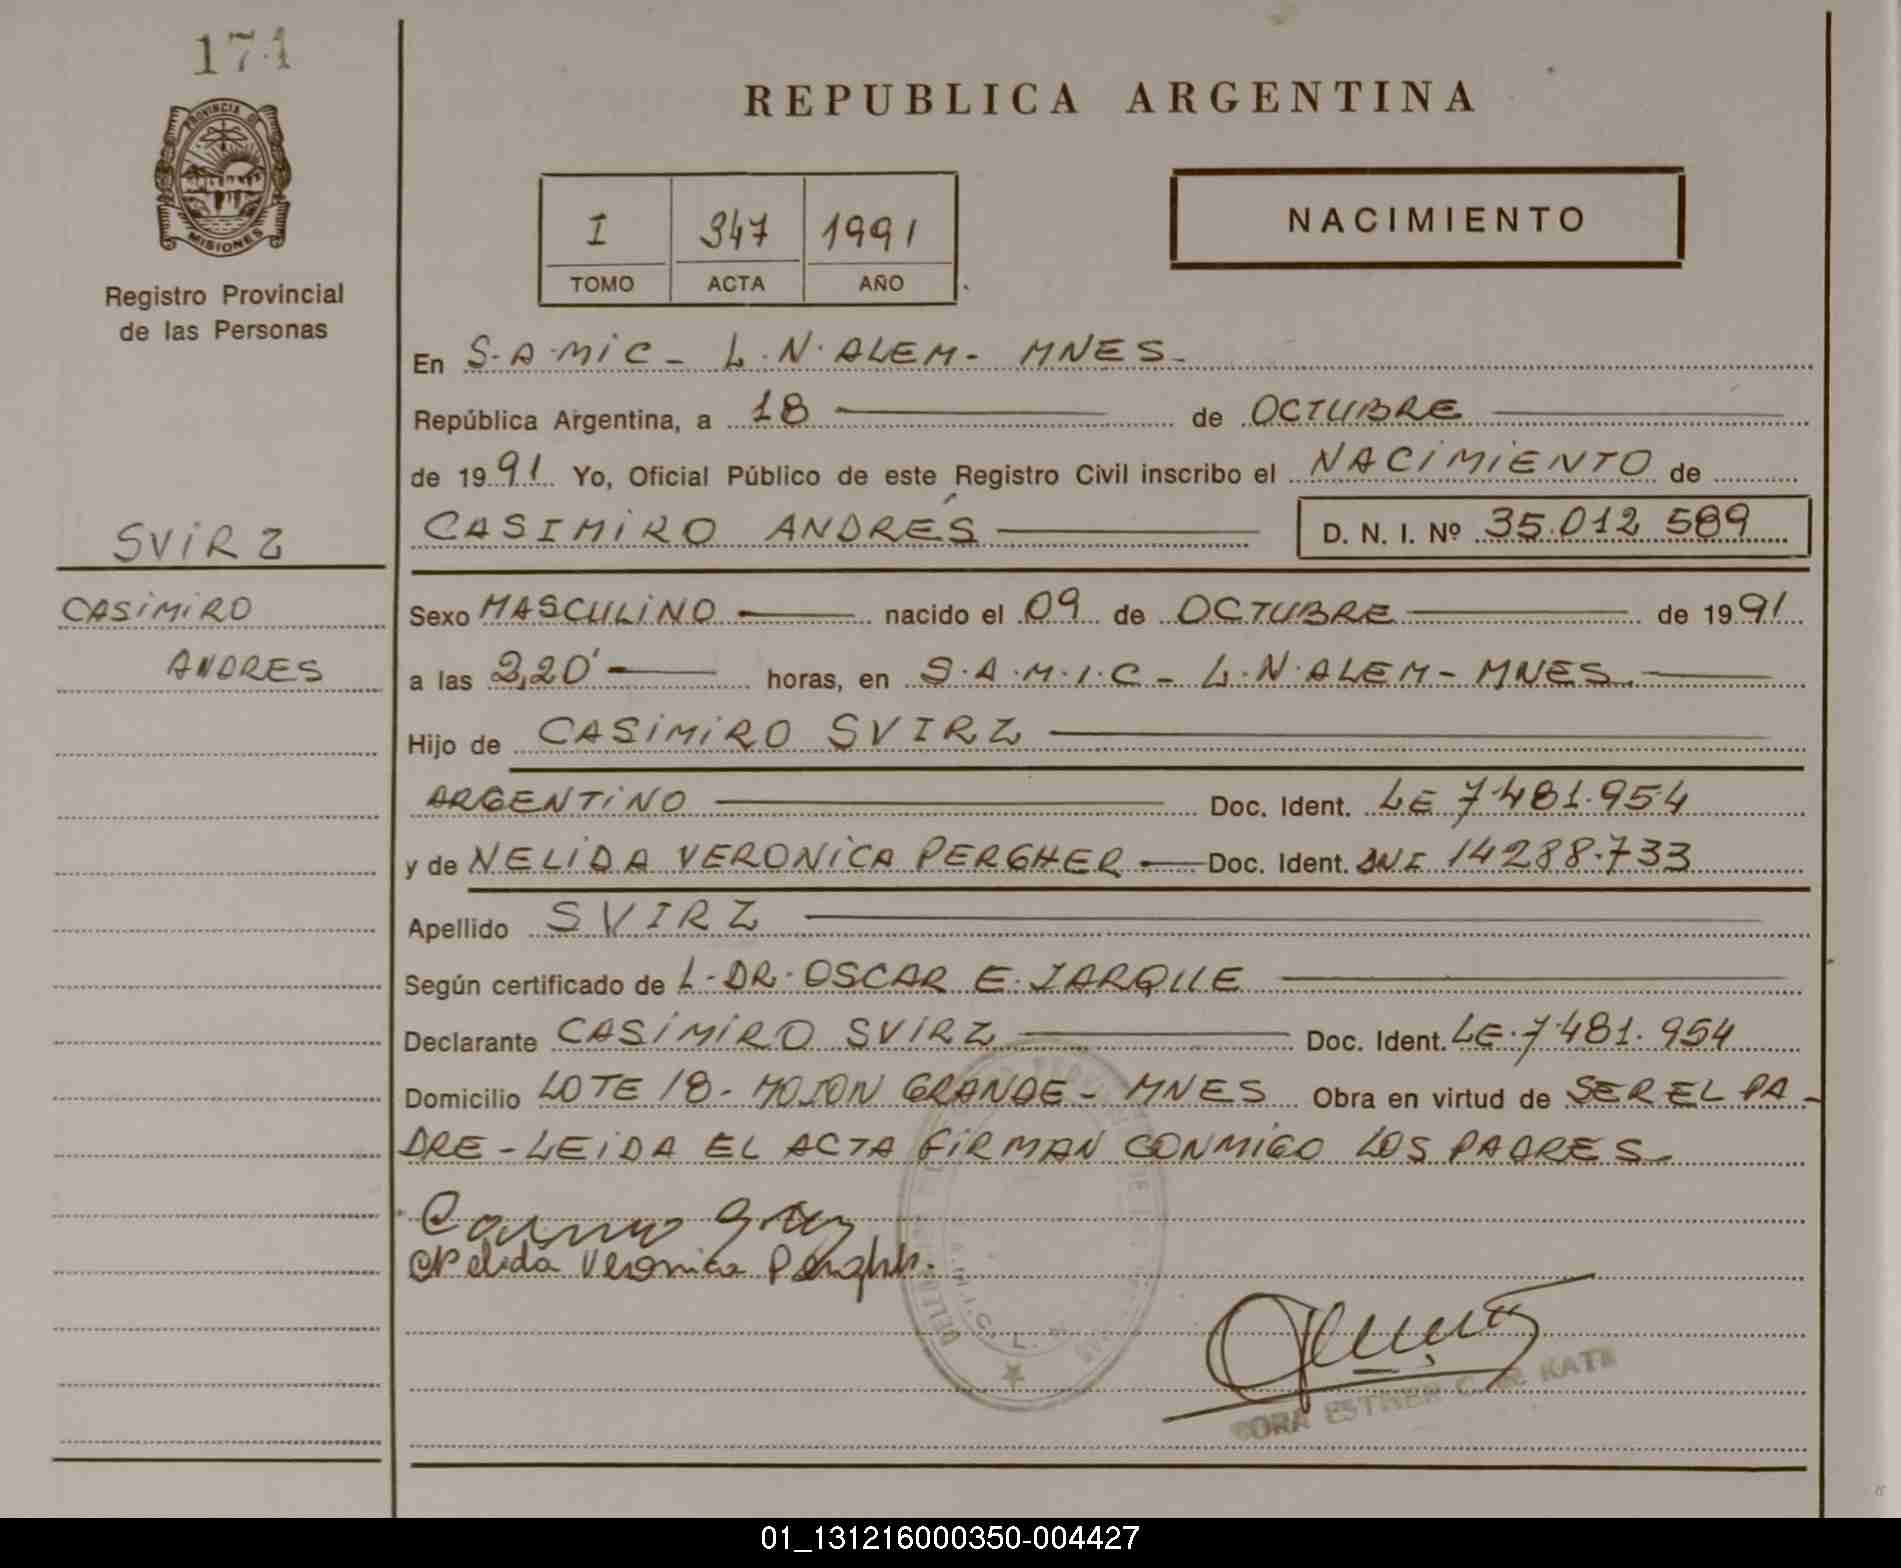 174
PROVINCIA DE
MISIONES
Registro Provincial
de las Personas
SVIRZ
CASIMIRO
ANDRES
REPUBLICA ARGENTINA
I 347 1991
TOMO ACTA AÑO
NACIMIENTO
En S.A.MIC - L.N.ALEM - MNES-
República Argentina, a 18 de OCTUBRE
de 1991 Yo, Oficial Público de este Registro Civil inscribo el NACIMIENTO de
CASIMIRO ANDRÉS D. N. I. Nº 35.012 589
Sexo MASCULINO nacido el 09 de OCTUBRE de 1991
a las 2,20' horas, en S.A.M.I.C - L.N.ALEM - MNES.
Hijo de CASIMIRO SVIRZ
ARGENTINO Doc. Ident. LE 7.481.954
y de NELIDA VERONICA PERGHER Doc. Ident. DNI 14288.733
Apellido SVIRZ
Según certificado de L. DR. OSCAR E. JARQUE
Declarante CASIMIRO SVIRZ Doc. Ident. LE. 7.481.954
Domicilio LOTE 18 - MOJON GRANDE - MNES Obra en virtud de SER EL PA-
DRE - LEIDA EL ACTA FIRMAN CONMIGO LOS PADRES-
Nelida Veronica
ESTHER C.
01_131216000350-004427